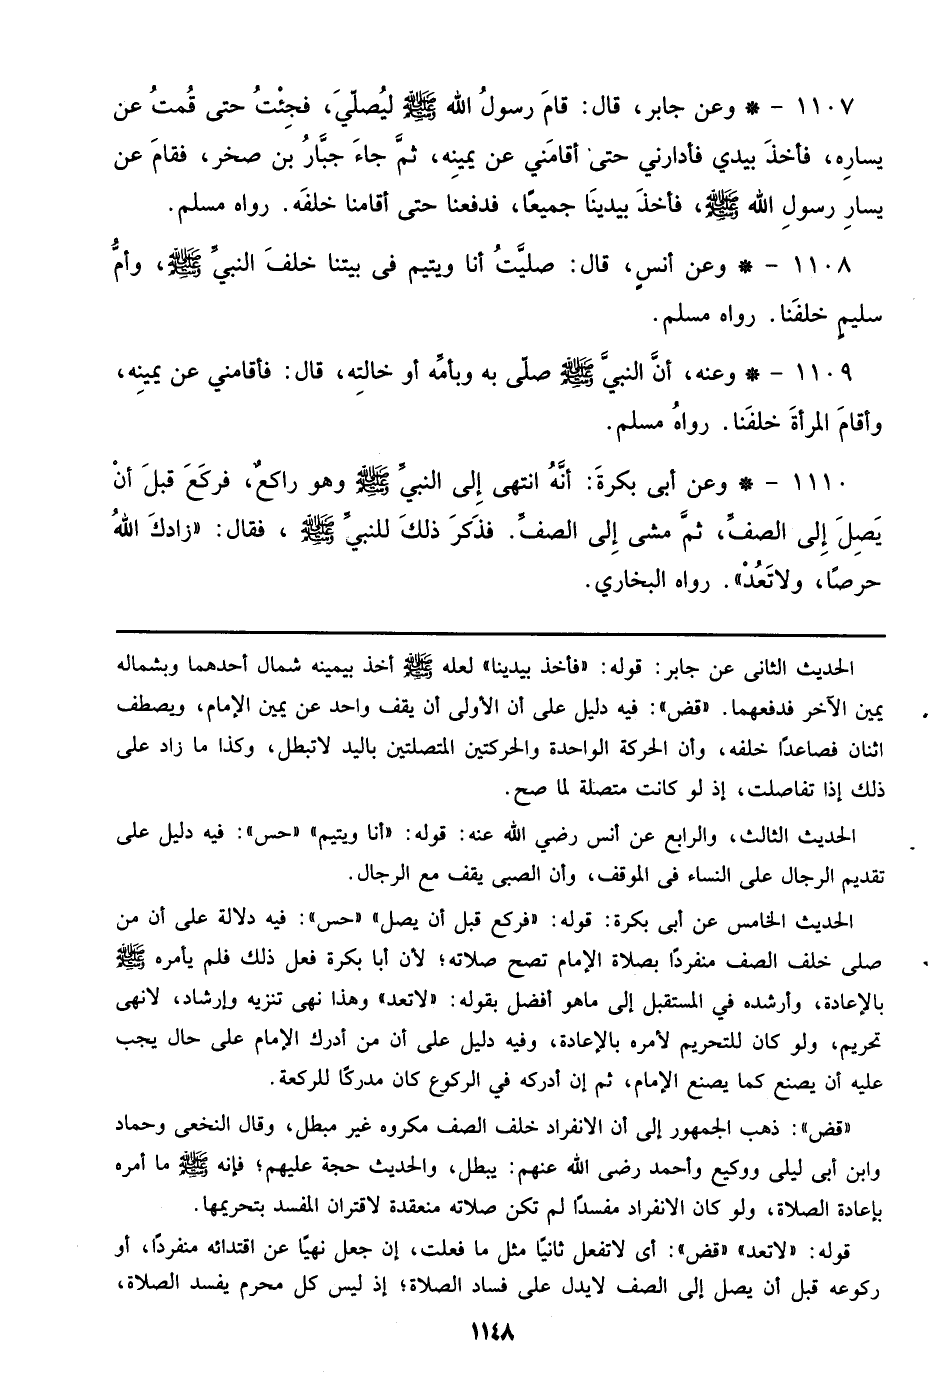 ١١٠٧ – * وعن جابر، قال: قامَ رسولُ الله ﷺ ليُصلّيَ، فجِئْتُ حتى قُمتُ عن
يسارِه، فأخذَ بيدي فأدارني حتى أقامَني عن يمينِه، ثمَّ جاءَ جبَّارُ بن صخر، فقامَ عن
يسارِ رسولِ الله ﷺ، فأخذَ بيدينَا جميعًا، فدفعنا حتى أقامنا خلفَه. رواه مسلم.
١١٠٨ – * وعن أنسٍ، قال: صليَّتُ أنا ويتيم فى بيتنا خلفَ النبيِّ ﷺ، وأمُّ
سليمٍ خلفَنا. رواه مسلم.
١١٠٩ – * وعنه، أنَّ النبيَّ ﷺ صلّى به وبأمِّه أو خالتِه، قال: فأقامني عن يمينِه،
وأقامَ المرأةَ خلفَنا. رواهُ مسلم.
١١١٠ – * وعن أبى بكرةَ: أنَّهُ انتهى إِلى النبيِّ ﷺ وهو راكعٌ، فركَعَ قبلَ أنْ
يَصِلَ إِلى الصفِّ، ثمَّ مشى إِلى الصفِّ. فذكَرَ ذلكَ للنبيِّ ﷺ ، فقال: «زادكَ اللهُ
حرصًا، ولاتَعُدْ». رواه البخاري.
الحديث الثانى عن جابر: قوله: «فأخذ بيدينا» لعله ﷺ أخذ بيمينه شمال أحدهما وبشماله
يمين الآخر فدفعهما. «قض»: فيه دليل على أن الأولى أن يقف واحد عن يمين الإمام، ويصطف
اثنان فصاعدًا خلفه، وأن الحركة الواحدة والحركتين المتصلتين باليد لاتبطل، وكذا ما زاد على
ذلك إذا تفاصلت، إذ لو كانت متصلة لما صح.
الحديث الثالث، والرابع عن أنس رضي الله عنه: قوله: «أنا ويتيم» «حس»: فيه دليل على
تقديم الرجال على النساء فى الموقف، وأن الصبى يقف مع الرجال.
الحديث الخامس عن أبى بكرة: قوله: «فركع قبل أن يصل» «حس»: فيه دلالة على أن من
صلى خلف الصف منفردًا بصلاة الإمام تصح صلاته؛ لأن أبا بكرة فعل ذلك فلم يأمره ﷺ
بالإعادة، وأرشده في المستقبل إلى ماهو أفضل بقوله: «لاتعد» وهذا نهى تنزيه وإرشاد، لانهى
تحريم، ولو كان للتحريم لأمره بالإعادة، وفيه دليل على أن من أدرك الإمام على حال يجب
عليه أن يصنع كما يصنع الإمام، ثم إن أدركه في الركوع كان مدركًا للركعة.
«قض»: ذهب الجمهور إلى أن الانفراد خلف الصف مكروه غير مبطل، وقال النخعى وحماد
وابن أبى ليلى ووكيع وأحمد رضى الله عنهم: يبطل، والحديث حجة عليهم؛ فإنه ﷺ ما أمره
بإعادة الصلاة، ولو كان الانفراد مفسدًا لم تكن صلاته منعقدة لاقتران المفسد بتحريمها.
قوله: «لاتعد» «قض»: أى لاتفعل ثانيًا مثل ما فعلت، إن جعل نهيًا عن اقتدائه منفردًا، أو
ركوعه قبل أن يصل إلى الصف لايدل على فساد الصلاة؛ إذ ليس كل محرم يفسد الصلاة،
١١٤٨